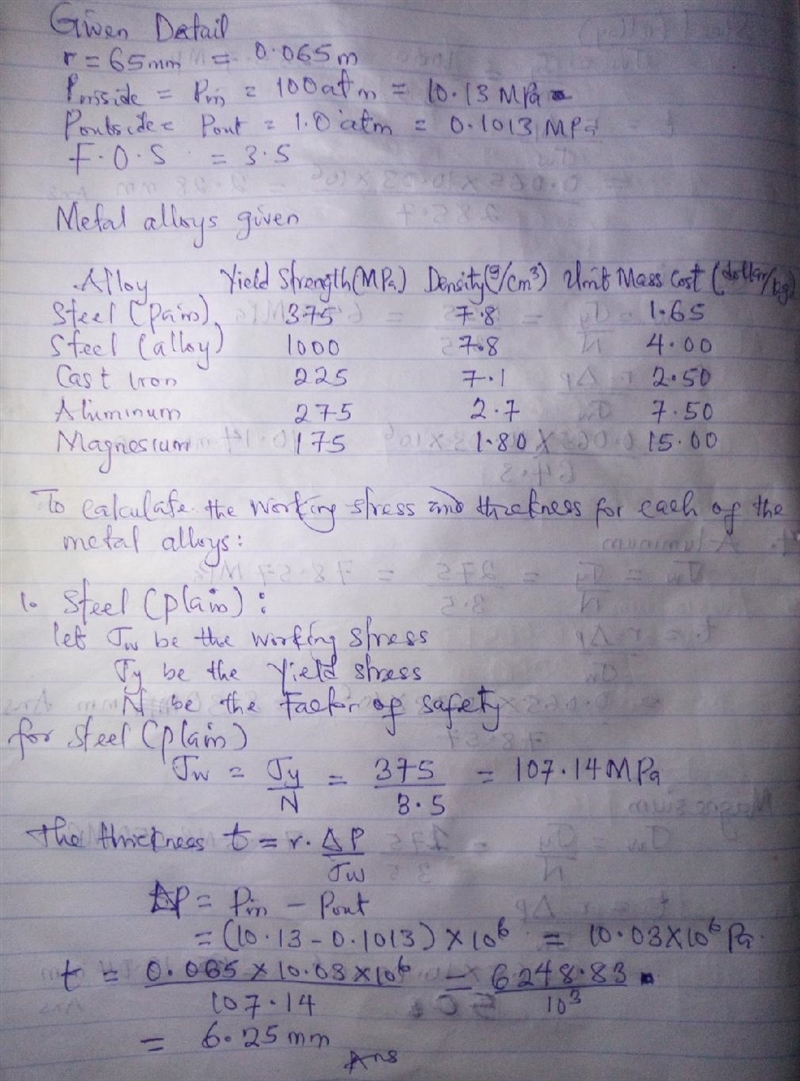 Given Detail
r = 65mm = 0.065m
Pinside = Pin = 100atm = 10.13 MPa
Poutside = Pout = 1.0 atm = 0.1013 MPa
F.O.S = 3.5
Metal alloys given
Alloy Yield Strength(MPa) Density(g/cm³) Unit Mass Cost (dollar/kg)
Steel (Plain) 375 7.8 1.65
Steel (alloy) 1000 7.8 4.00
Cast Iron 225 7.1 2.50
Aluminum 275 2.7 7.50
Magnesium 175 1.80 15.00
To calculate the working stress and thickness for each of the
metal alloys:
1. Steel (Plain):
let σw be the working stress
σy be the Yield stress
N be the Factor of safety
for Steel (Plain)
σw = σy/N = 375/3.5 = 107.14 MPa
The thickness t = r. ΔP/σw
ΔP = Pin - Pout
= (10.13 - 0.1013) × 10⁶ = 10.03×10⁶ Pa.
t = 0.065 × 10.03 × 10⁶/107.14 = 6248.83/10³
= 6.25 mm
Ans